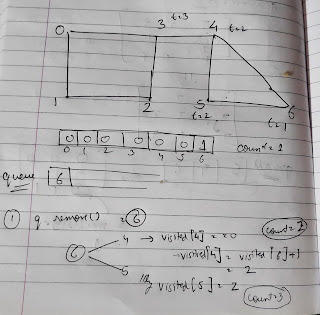 0 3 t=3 4 t=2
1 2 5 t=2 6 t=1
0 0 0 0 0 0 1
0 1 2 3 4 5 6
count = 1
queue 6
① q. remove() = 6
6
4 → visited[4] = 0
→ visited[4] = visited[6]+1
= 2
count = 2
5
visited[5] = 2
count = 3